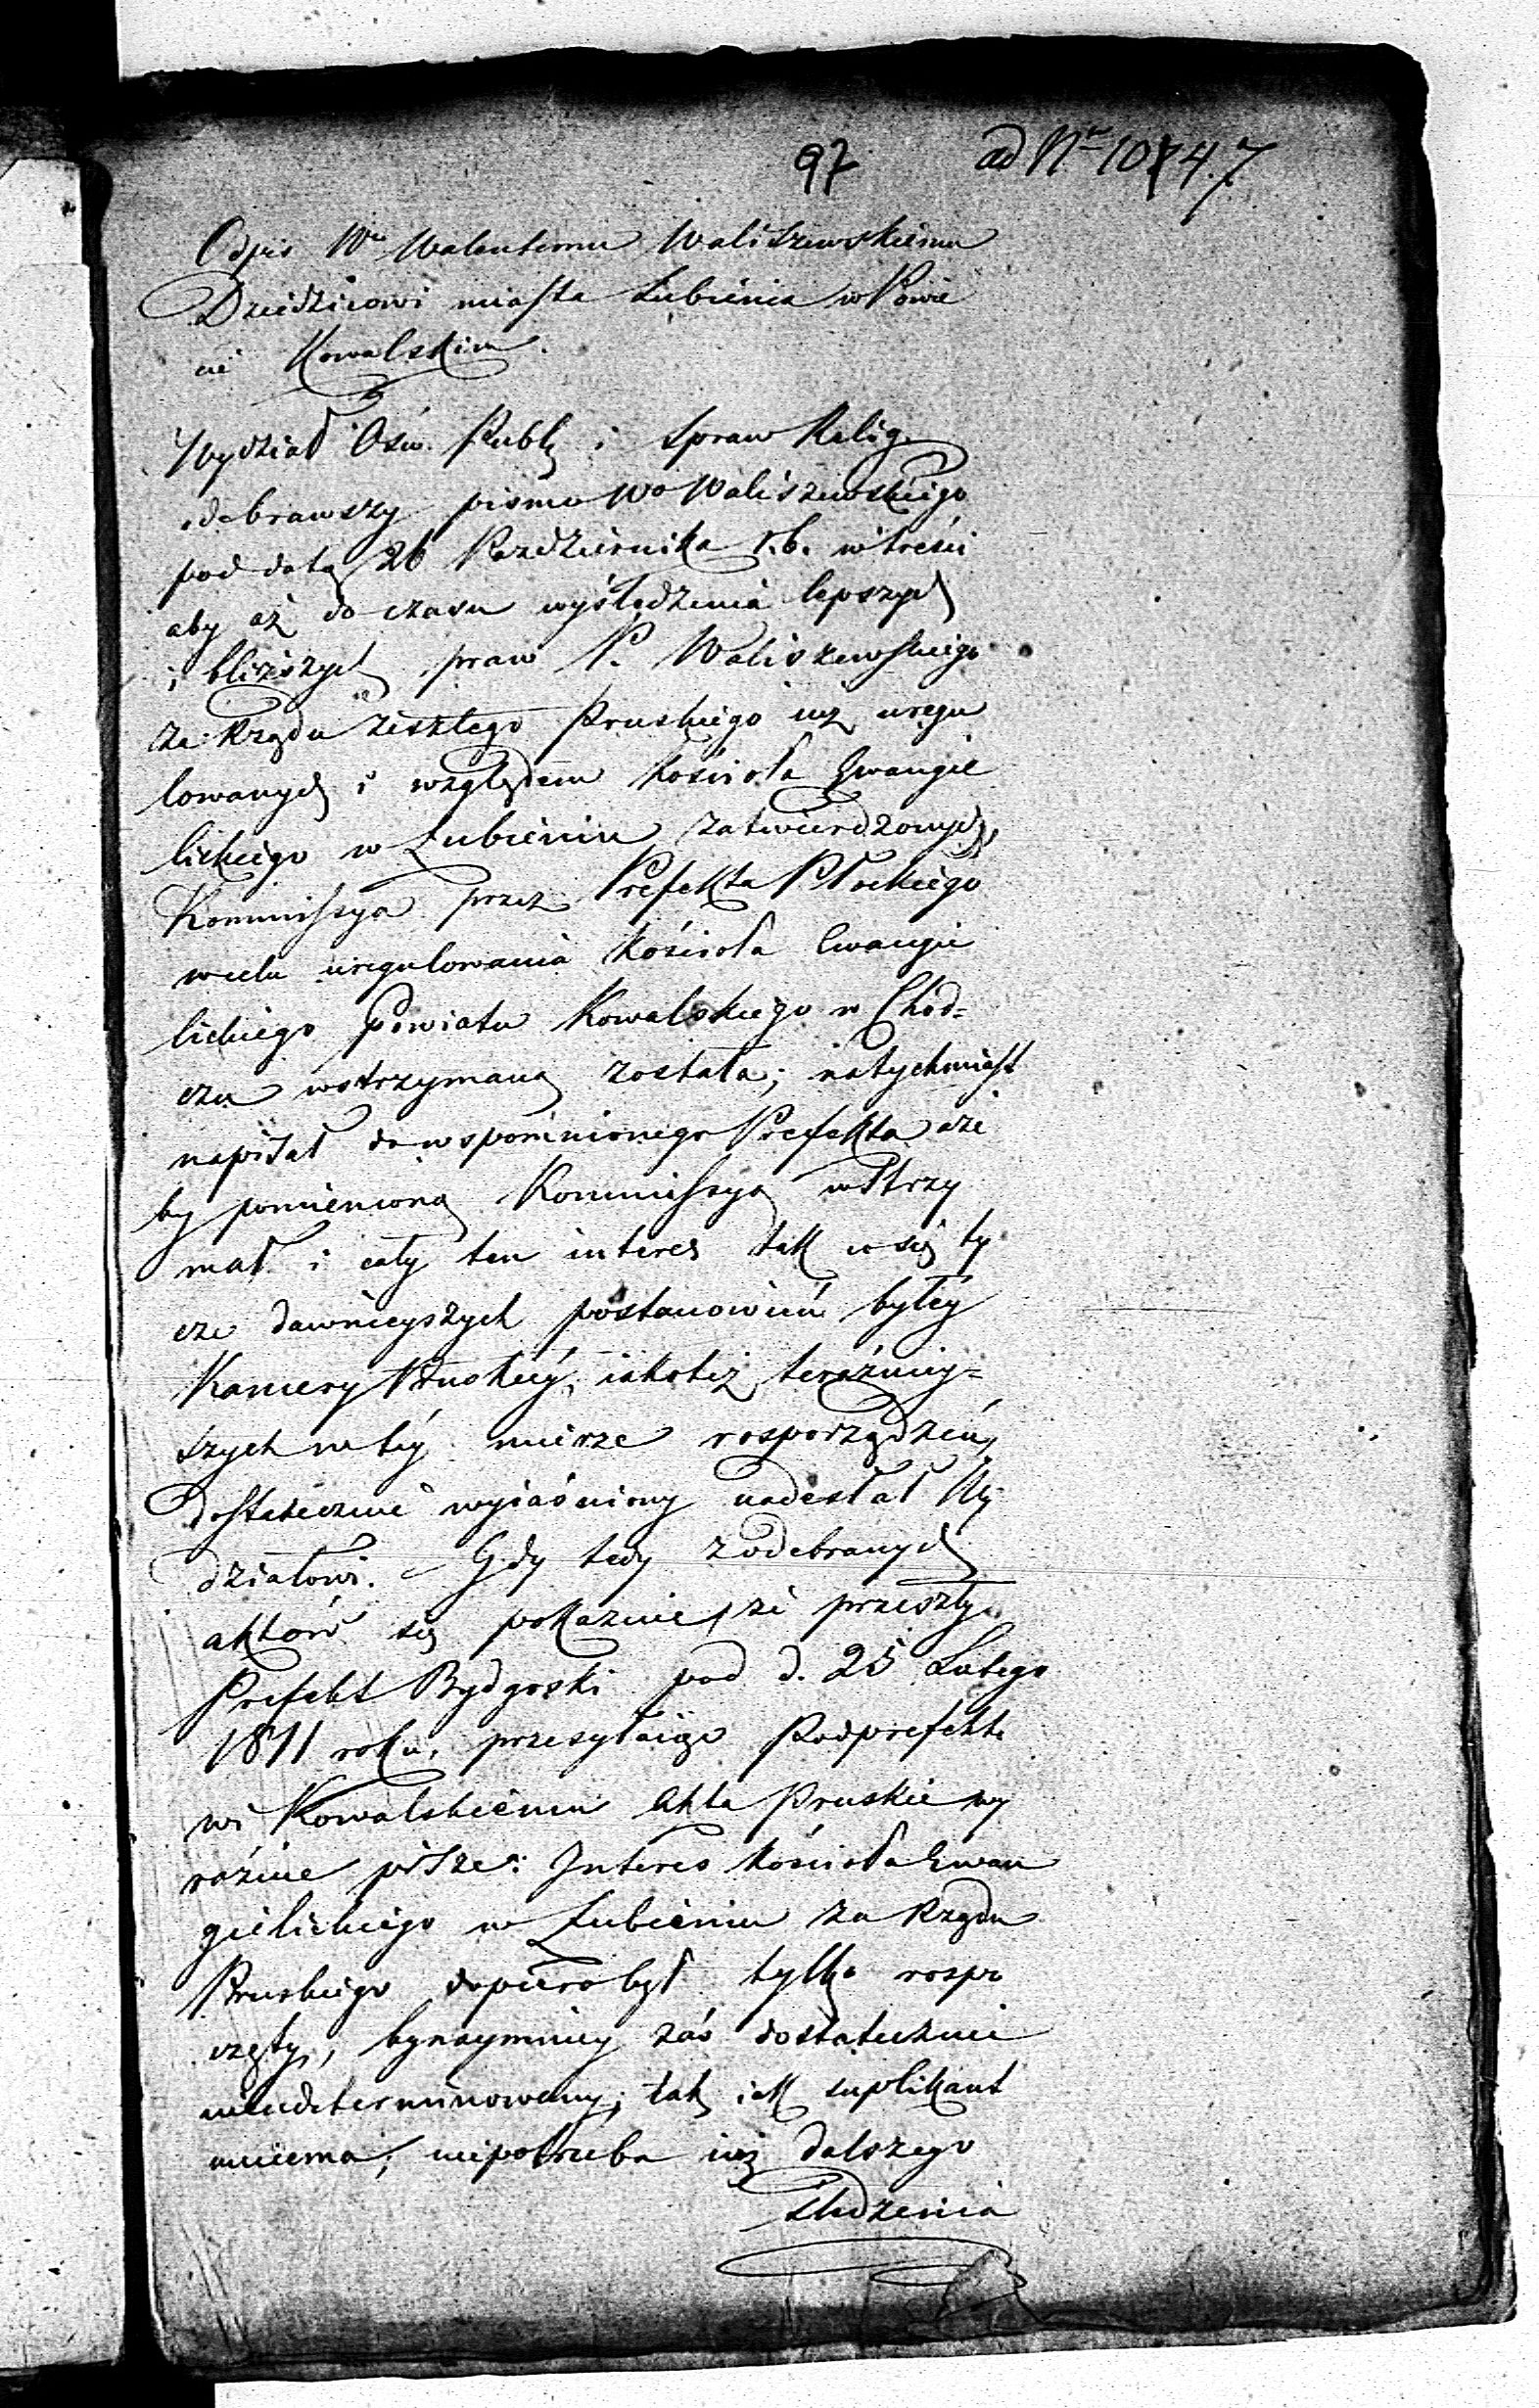 97 ad Nr 10747
Odpis Wu Walentemu Waliszewskiemu
Dziedzicowi miasta Lubienia w Powie
cie Kowalskim.
Wydział Ośw. Publ i Spraw Relig.
odebrawszy pismo Wo Waliszewskiego
pod datą 26 Pazdziernika r.b. w treści
aby aż do czasu wyśledzenia lepszych
i bliższych praw P. Waliszewskiego
za Rządu zeszłego Pruskiego iuż uregu
lowanych i względem Kościoła Ewangie
lickiego w Lubieniu zatwierdzonych,
Kommissya przez Prefekta Płockiego
w celu uregulowania Kościoła Ewangie
lickiego Powiatu Kowalskiego w Chod=
czu wstrzymaną została; natychmiast
napisał do wspomnionego Prefekta aże
by pomienioną Kommissyą wstrzy
mał i cały ten interes tak co się ty
cze dawnieyszych postanowień byłéy
Kamery Pruskiéy, iakoteż teraźniey=
szych w téy mierze rosporządzeń,
dostatecznie wyiaśniony nadesłał Wy
działowi. Gdy tedy z odebranych
aktów się pokazuie, że przeszły
Prefekt Bydgoski pod d. 25 Lutego
1811 roku, przesyłaiąc Podprefekto
wi Kowalskiemu Akta Pruskie wy
raźnie pisze: Interes Kościoła Ewan
gielickiego w Lubieniu za Rządu
Pruskiego dopiero był tylko rospo
częty, bynaymniey zaś dostatecznie
niedeterminowany; tak iak suplikant
mniema; niepotrzeba iuż dalszego
śledzenia